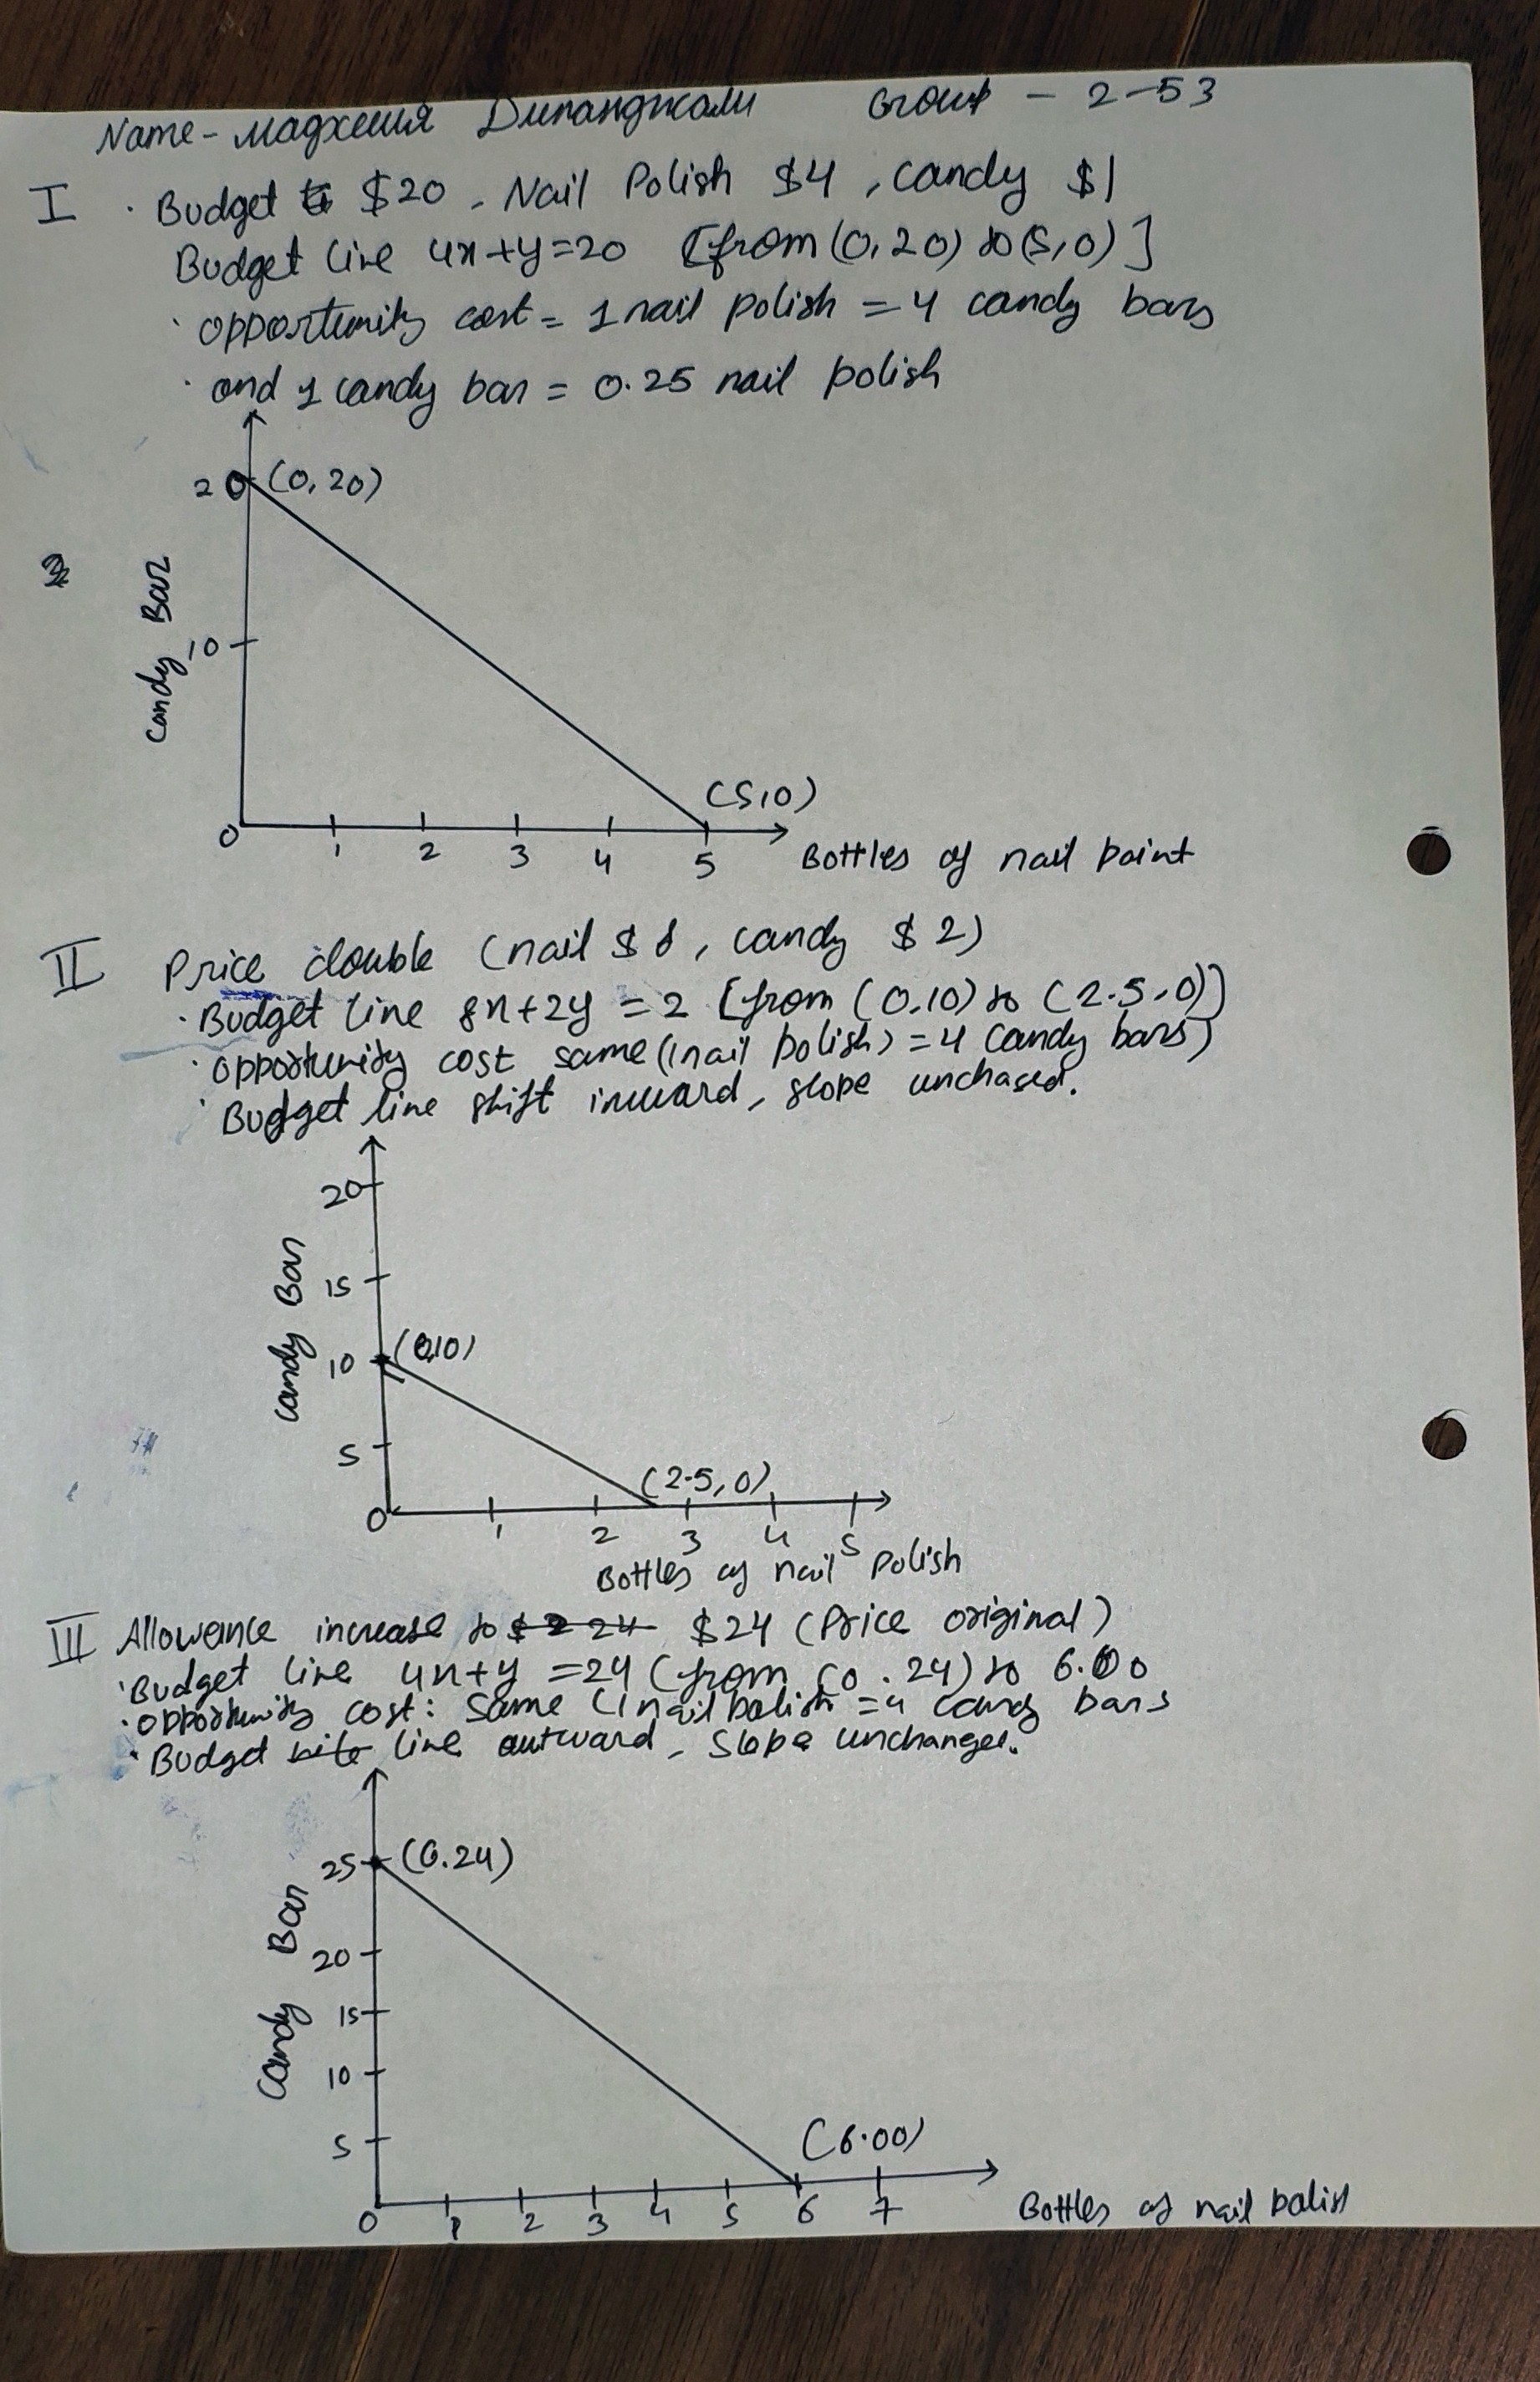 Name - Мадхешия Дипанджали Group - 2-53
I . Budget $20, Nail Polish $4, candy $1
Budget line 4x+y=20 [from (0,20) to (5,0)]
. opportunity cost = 1 nail polish = 4 candy bars
. and 1 candy bar = 0.25 nail polish
20 (0,20)
Candy Bar
10
(5,0)
0 1 2 3 4 5 Bottles of nail paint
II Price double (nail $8, candy $2)
. Budget line 8x+2y = 2 [from (0,10) to (2.5,0)]
. opportunity cost same (1 nail polish) = 4 candy bars)
. Budget line shift inward, slope unchased.
20
Candy Bar
15
10 (0,10)
5
(2.5,0)
0 1 2 3 4 5
Bottles of nail Polish
III Allowance increase to $24 (Price original)
. Budget line 4x+y = 24 (from (0.24) to 6.00
. opportunity cost: same (1 nail polish = 4 candy bars
. Budget line outward, slope unchanges.
25 (0.24)
Candy Bar
20
15
10
5
(6.00)
0 1 2 3 4 5 6 7 Bottles of nail polish